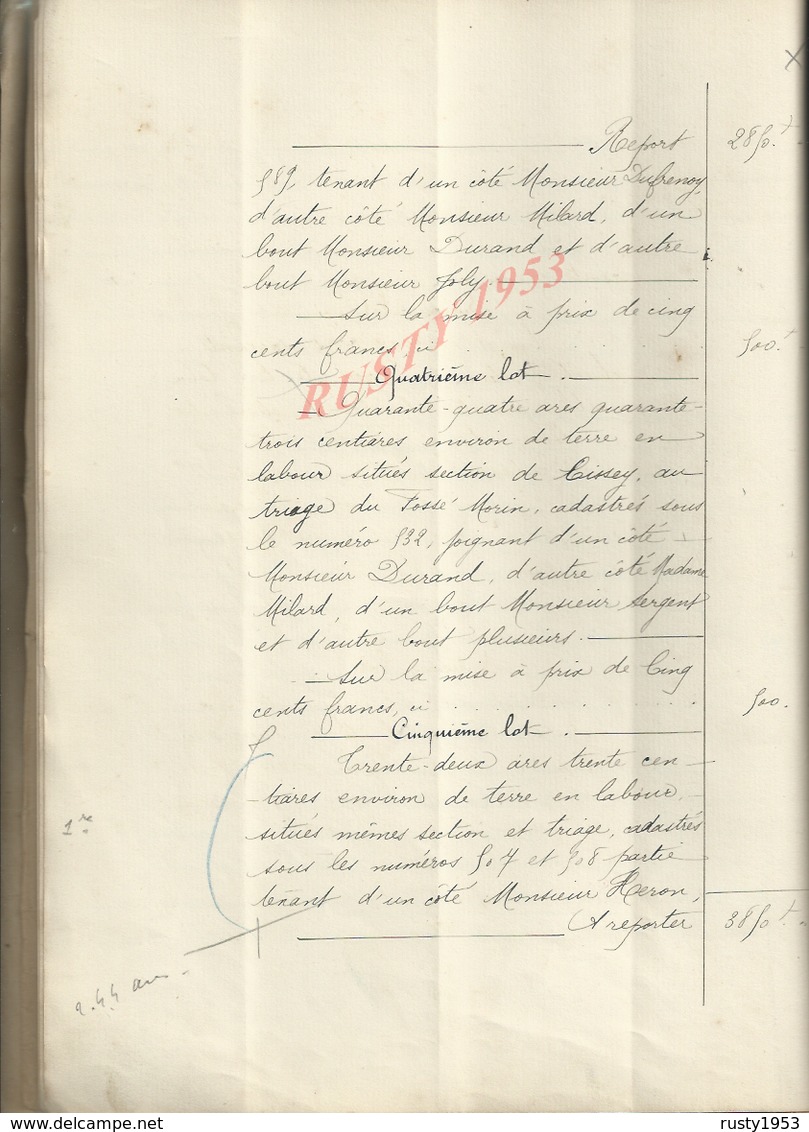 Report 2850.
589, tenant d'un côté Monsieur Dufrenoy,
d'autre côté Monsieur Milard, d'un
bout Monsieur Durand et d'autre
bout Monsieur Joly.
Sur la mise à prix de cinq
cents francs, ci . . . . . . . 500.
Quatrième lot.
Quarante-quatre ares quarante-
trois centiares environ de terre en
labour situés section de Cissey, au
triage du Fossé Morin, cadastrés sous
le numéro 532, joignant d'un côté
Monsieur Durand, d'autre côté Madame
Milard, d'un bout Monsieur Sergent
et d'autre bout plusieurs.
Sur la mise à prix de Cinq
cents francs, ci . . . . . . . 500.
Cinquième lot.
Trente-deux ares trente cen-
tiares environ de terre en labour,
situés mêmes section et triage, cadastrés
1re
sous les numéros 507 et 508 partie
tenant d'un côté Monsieur Heron,
A reporter 3850.
RUSTY 1953
www.delcampe.net
rusty1953